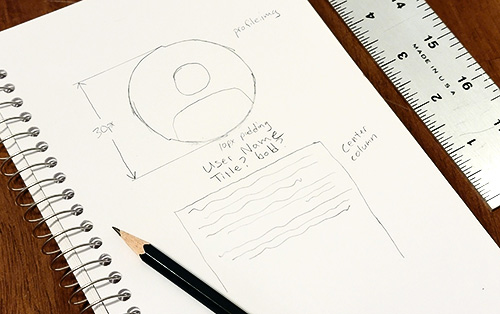 profile.img
30px
10px padding
User Name
Title? bold?
center
column
4
3
15
16
MADE IN U.S.A